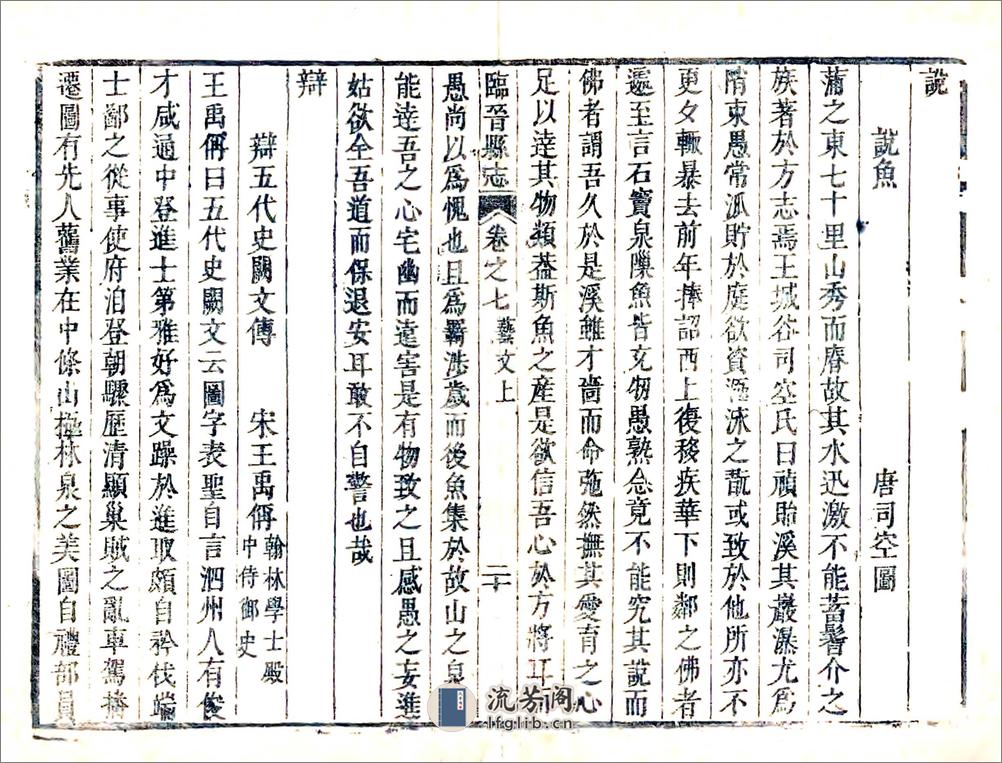 說
說魚 唐司空圖
蒲之東七十里山秀而瘠故其水迅激不能蓄鬐介之
族著於方志焉王城谷司空氏曰禎貽溪其巖瀑尤為
隋束愚常泒貯於庭欲資泳之翫或致於他所亦不
更夕輙暴去前年捧詔西上復移疾華下則鄰之佛者
遽至言石竇泉隟魚皆充牣愚熟念竟不能究其說而
佛者謂吾久於是溪雖才嗇而命虺然撫其愛育之心
足以逹其物類葢斯魚之產是欲信吾心於方將耳
臨晉縣志 卷之七 藝文上 二十
愚尚以為愧也且為覊涉歲而後魚集於故山之泉
能逹吾之心宅幽而遠害是有物致之且感愚之妄進
姑欲全吾道而保退安耳敢不自警也哉
辯
辯五代史闕文傳 宋王禹偁 翰林學士殿中侍御史
王禹偁曰五代史闕文云圖字表聖自言泗州人有俊
才咸通中登進士第雅好為文躁於進取頗自矜伐端
士鄙之從事使府洎登朝驟歷清顯巢賊之亂車駕播
遷圖有先人舊業在中條山極林泉之美圖自禮部員
流芳阁
lfglib.cn